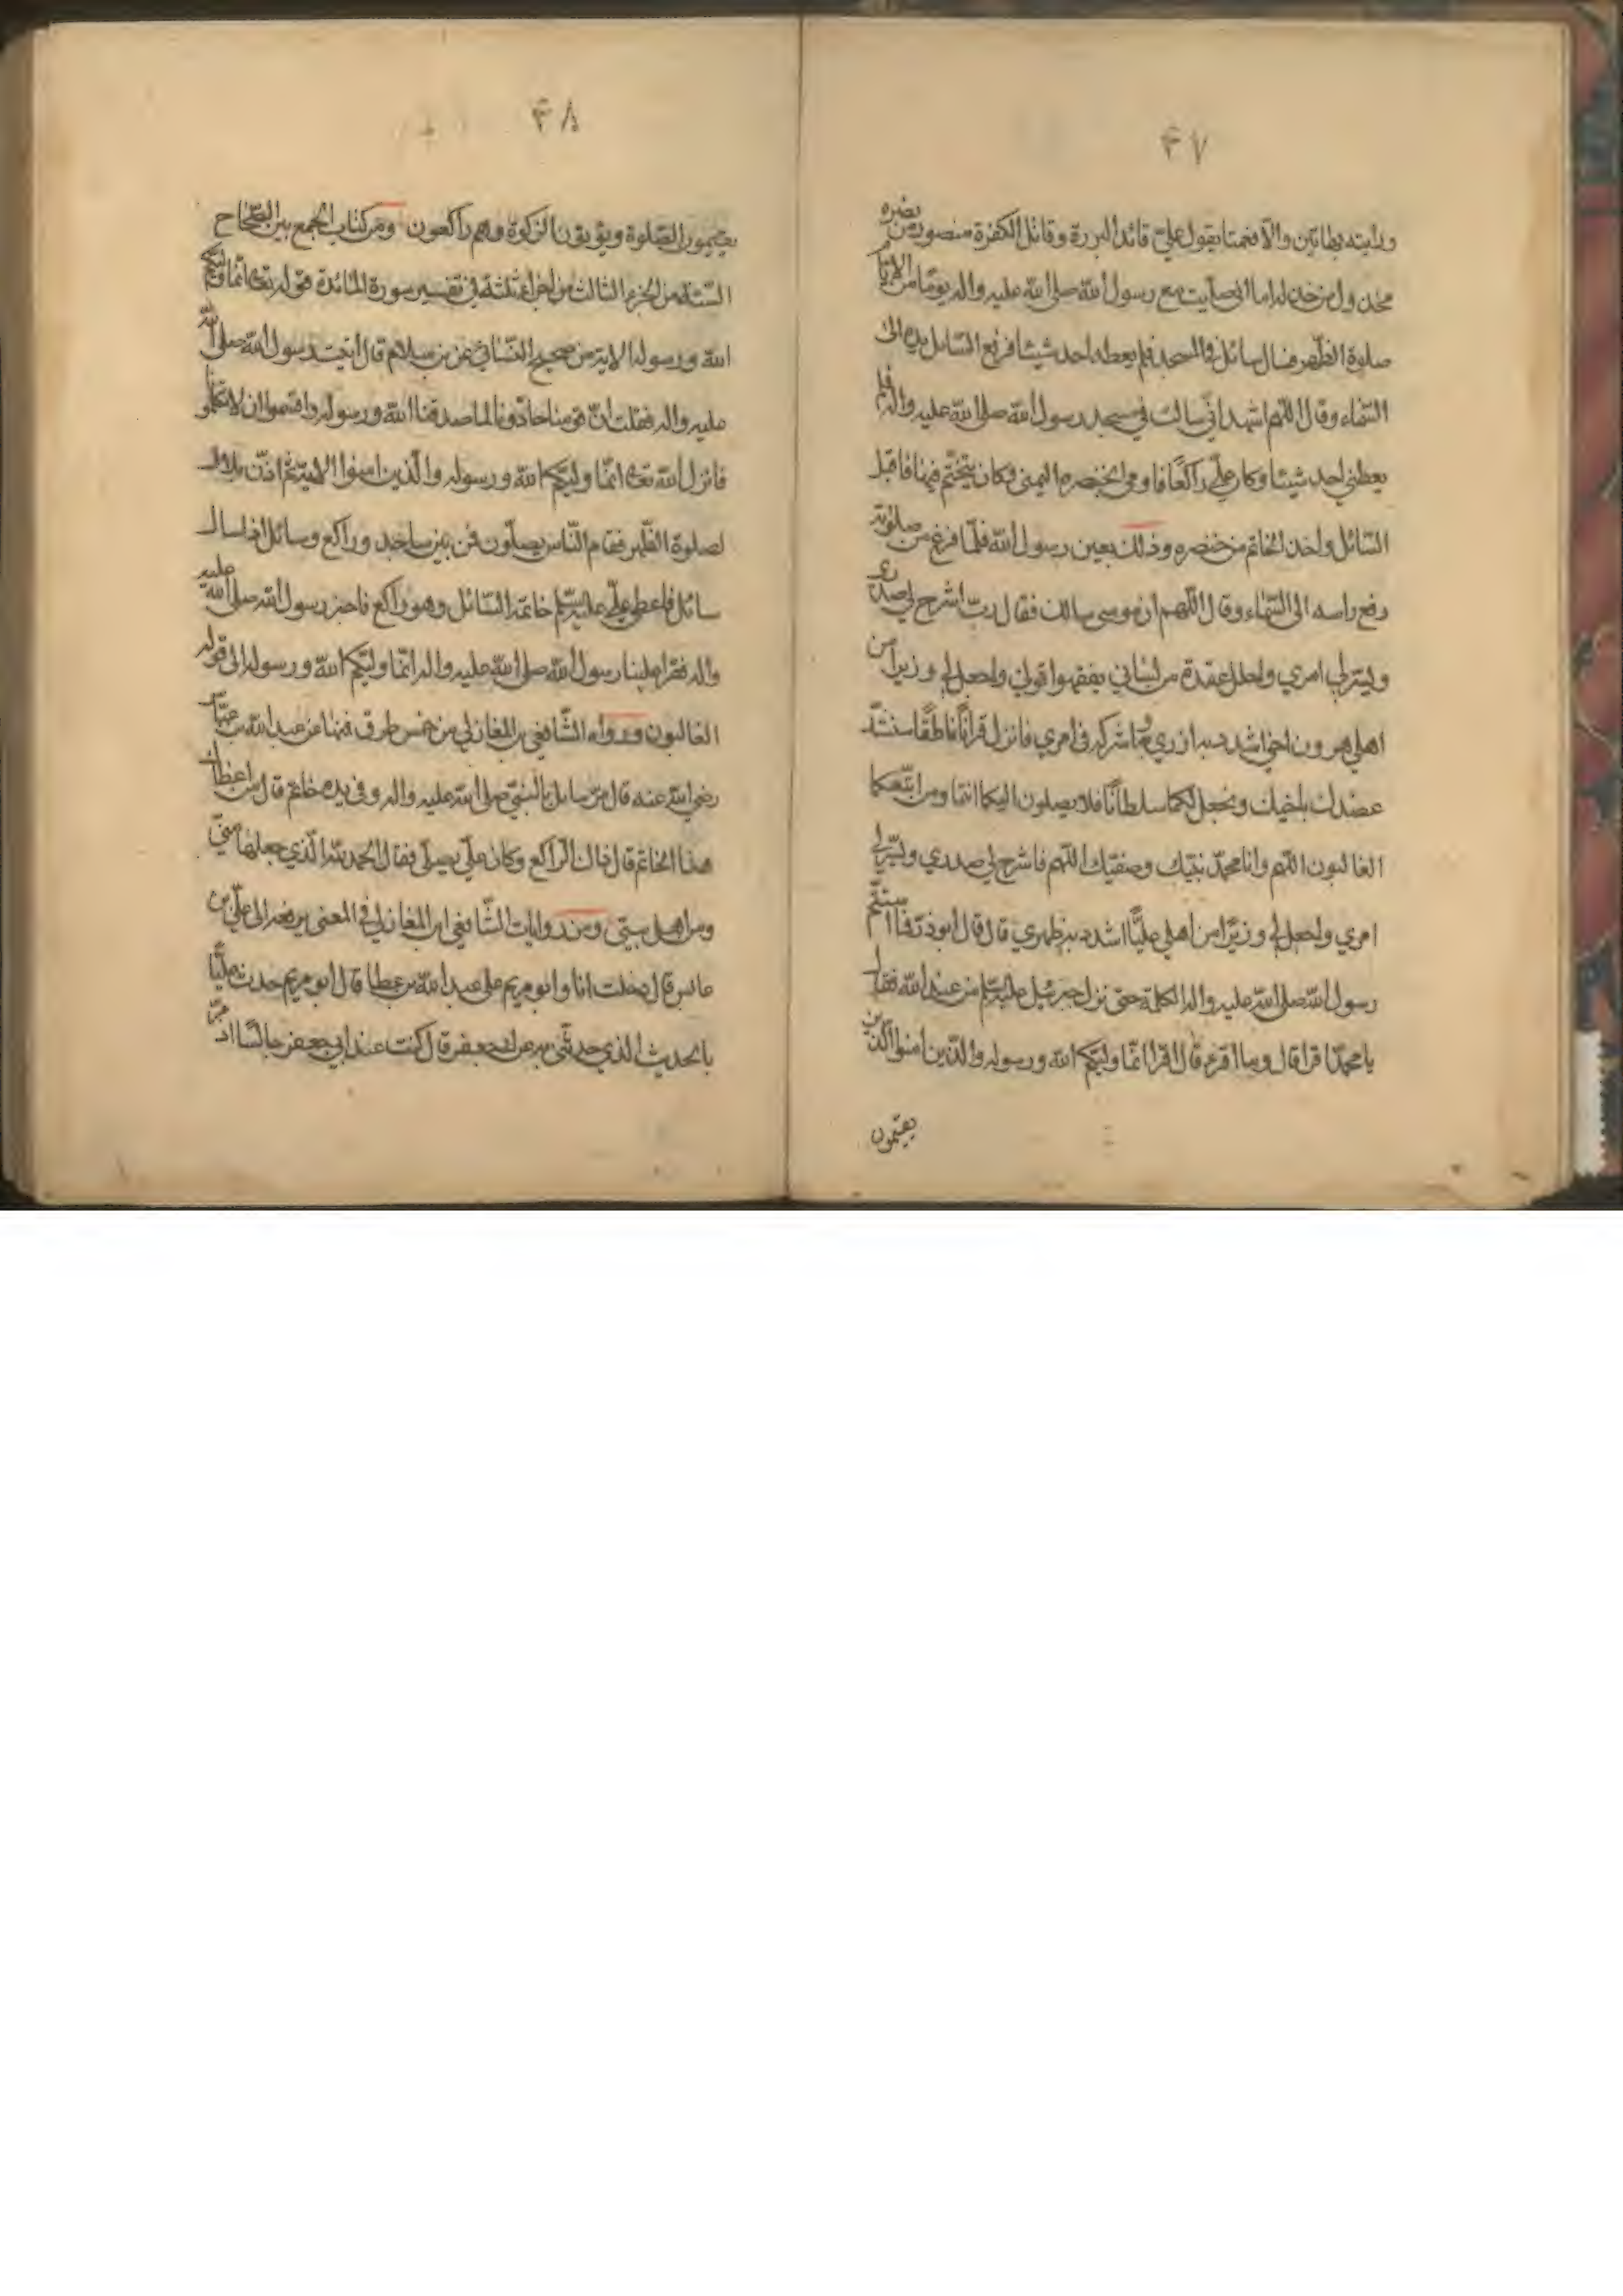 ٤٧
ورايته بهاتين والا فعميتا يقول علي قائد البررة وقاتل الكفرة منصور من نصره
مخذول من خذله اما اني صليت مع رسول الله صلى الله عليه واله يوما من الايام
صلوة الظهر فسال سائل في المسجد فلم يعطه احد شيئا فرفع السائل يده الى
السماء وقال اللهم اشهد اني سالت في مسجد رسول الله صلى الله عليه واله فلم
يعطني احد شيئا وكان علي راكعا فاومى بخنصره اليمنى وكان يتختم فيها فاقبل
السائل واخذ الخاتم من خنصره وذلك بعين رسول الله فلما فرغ من صلوته
رفع راسه الى السماء وقال اللهم ان موسى سالك فقال رب اشرح لي صدري
ويسر لي امري واحلل عقدة من لساني يفقهوا قولي واجعل لي وزيرا من
اهلي هرون اخي اشدد به ازري واشركه في امري فانزل قرانا ناطقا سنشد
عضدك باخيك ونجعل لكما سلطانا فلا يصلون اليكما انتما ومن اتبعكما
الغالبون اللهم وانا محمد نبيك وصفيك اللهم فاشرح لي صدري ويسر لي
امري واجعل لي وزيرا من اهلي عليا اشدد به ظهري قال قال ابو ذر فما استتم
رسول الله صلى الله عليه واله الكلمة حتى نزل جبرئيل عليه السلم من عند الله فقال
يا محمد اقرا قال وما اقرء قال اقرا انما وليكم الله ورسوله والذين امنوا الذين
يقيمون
٤٨
يقيمون الصلوة ويؤتون الزكوة وهم راكعون ومن كتاب الجمع بين الصحاح
الستة من الجزء الثالث من اجزاء ثلثة في تفسير سورة المائدة قوله تعالى انما وليكم
الله ورسوله الاية من صحيح النسائي عن بن سلام قال اتيت رسول الله صلى الله
عليه واله فقلت ان قومنا حادونا لما صدقنا الله ورسوله واقسموا ان لا يكلمونا
فانزل الله تعالى انما وليكم الله ورسوله والذين امنوا الاية ثم اذن بلال
لصلوة الظهر فقام الناس يصلون فمن بين ساجد وراكع وسائل اذ سال
سائل فاعطى علي عليه السلم خاتمه السائل وهو راكع فاخبر رسول الله صلى الله عليه
واله فقرا علينا رسول الله صلى الله عليه واله انما وليكم الله ورسوله الى قوله
الغالبون ورواه الشافعي بن المغازلي من خمس طرق فمنها عن عبد الله بن عباس
رضي الله عنه قال مر سائل بالنبي صلى الله عليه واله وفي يده خاتم قال من اعطاك
هذا الخاتم قال ذاك الراكع وكان علي يصلي فقال الحمد لله الذي جعلها في
ومن اهل بيتي ومن روايات الشافعي ابن المغازلي في المعنى يرفعه الى علي بن
عابس قال دخلت انا وابو مريم على عبد الله بن عطا قال ابو مريم حدث عليا
بالحديث الذي حدثتني به عن ابي جعفر قال كنت عند ابي جعفر جالسا اذ مر